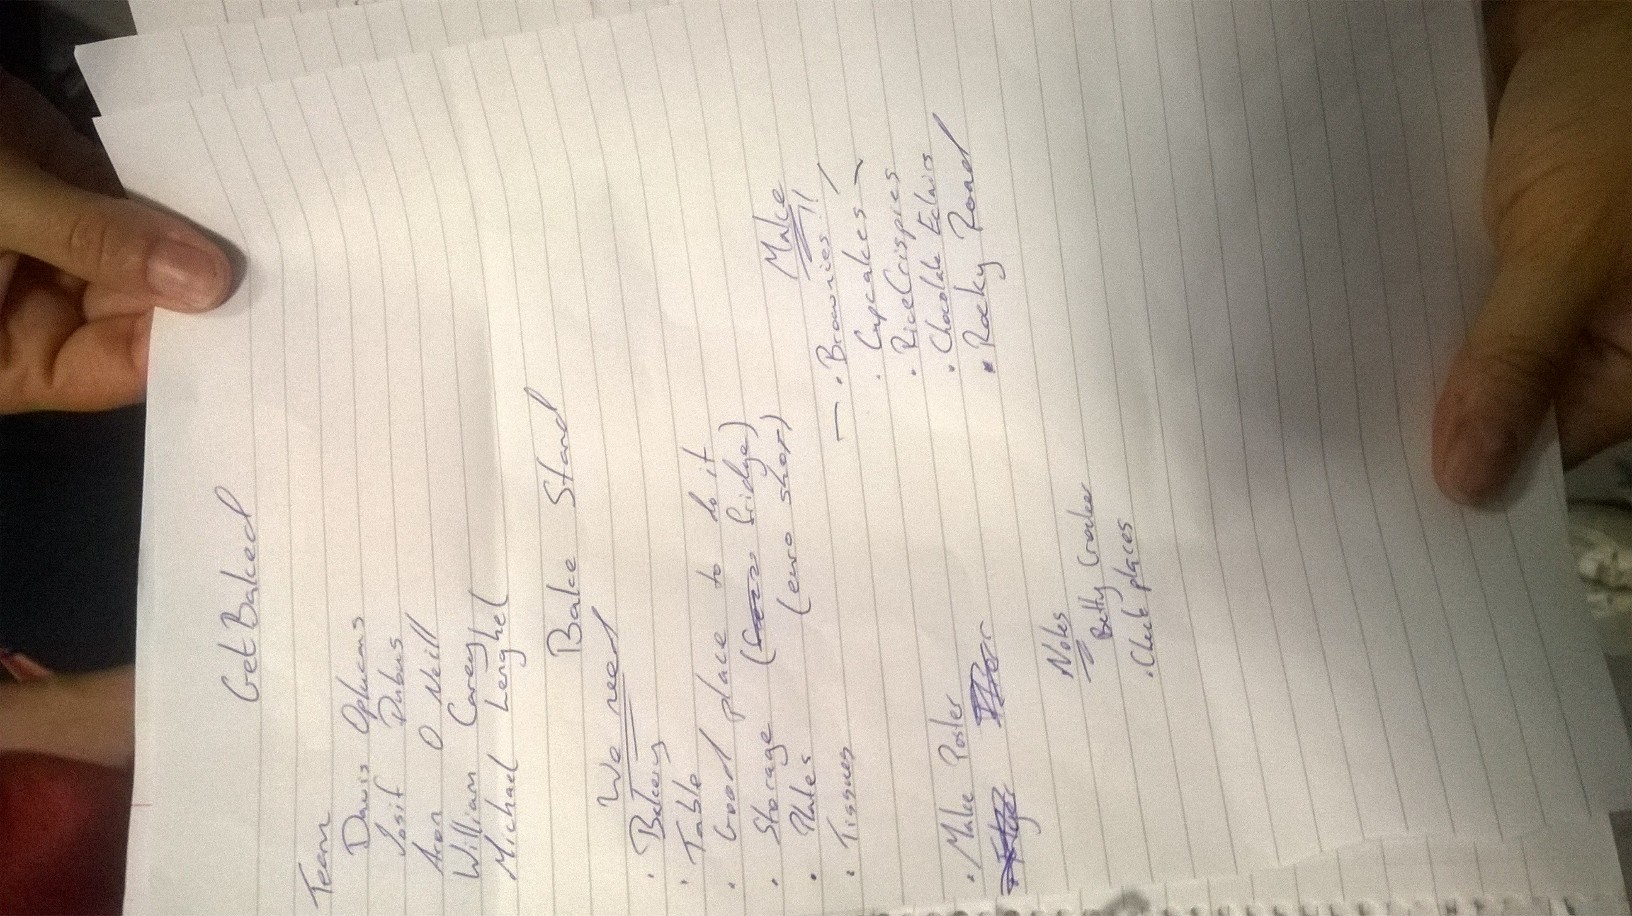 Get Baked
Team
Davis Oplucans
Josif Dubus
Aron O Neill
William Carey
Michael Lenghel
Bake Stand
We need
· Bakery
· Table
· Good place to do it
· Storage (fridge)
· Plates (euro shop)
· Tissues
Make
– · Brownies !!
· Cupcakes
· Rice Crispies
· Chocolate Eclairs
· Rocky Road
· Make Poster
Notes
Betty Crocker
· Check places